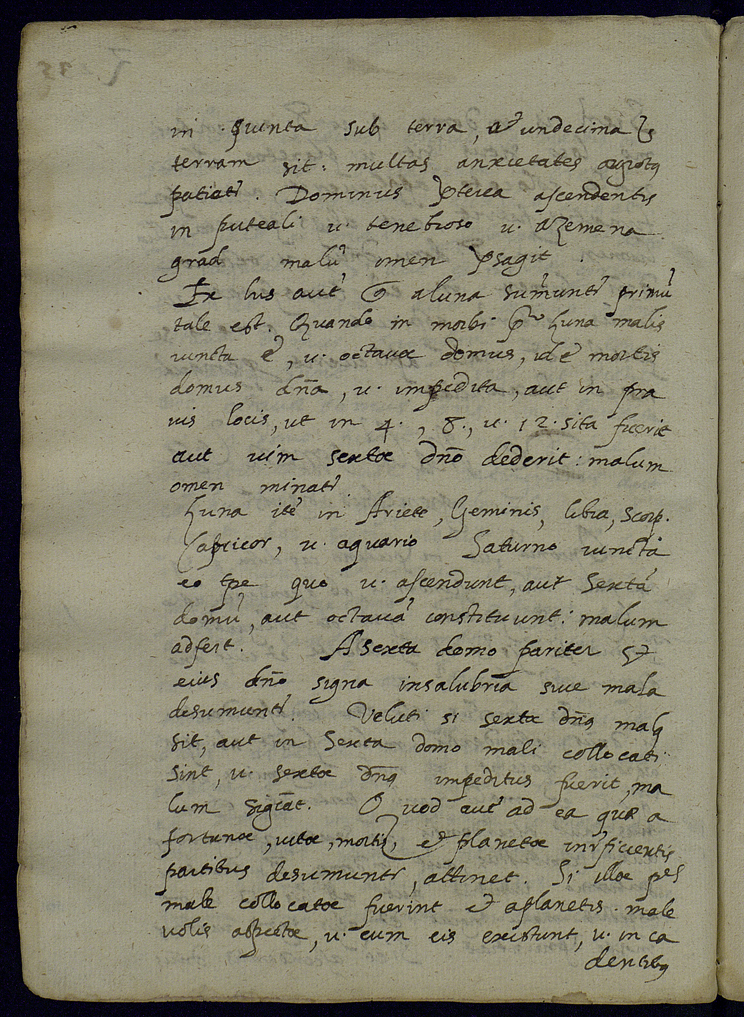 in quinta sub terra, et undecima
terram sit: multas anxietates aegrotus
patietr. Dominus pterea ascendentis
in puteali u. tenebroso u. azemena
grad malu omen psagit.
Ex his aut que a luna sumuntr primu
tale est. Quando in morbi pr luna malis
iuncta e, u. octavae domus, id e mortis
domus dna, u. impedita, aut in pra
uis locis, ut in 4., 8., u. 12. sita fuerit
aut uim sextae dno dederit: malum
omen minatr.
Luna ite in Ariete, Geminis, libra, Scorp.
Capricor, u. aquario Saturno iuncta
eo tpe quo u. ascendunt, aut sexta
domu, aut octava constituunt: malum
adfert. A sexta domo pariter et
eius dno signa insalubria siue mala
desumuntr. Veluti si sexta dnq malq
sit, aut in sexta domo mali collocati
sint, u. sextae dnq impeditus fuerit, ma
lum sigcat. Quod aut ad ea quae a
fortunae, uitae, mortis, et planetae inrficientis
partibus desumuntr, attinet. Si illae pes
male collocatae fuerint et aplanetis male
uolis aspectae, u. cum eis existunt, u. in ca
dentibq